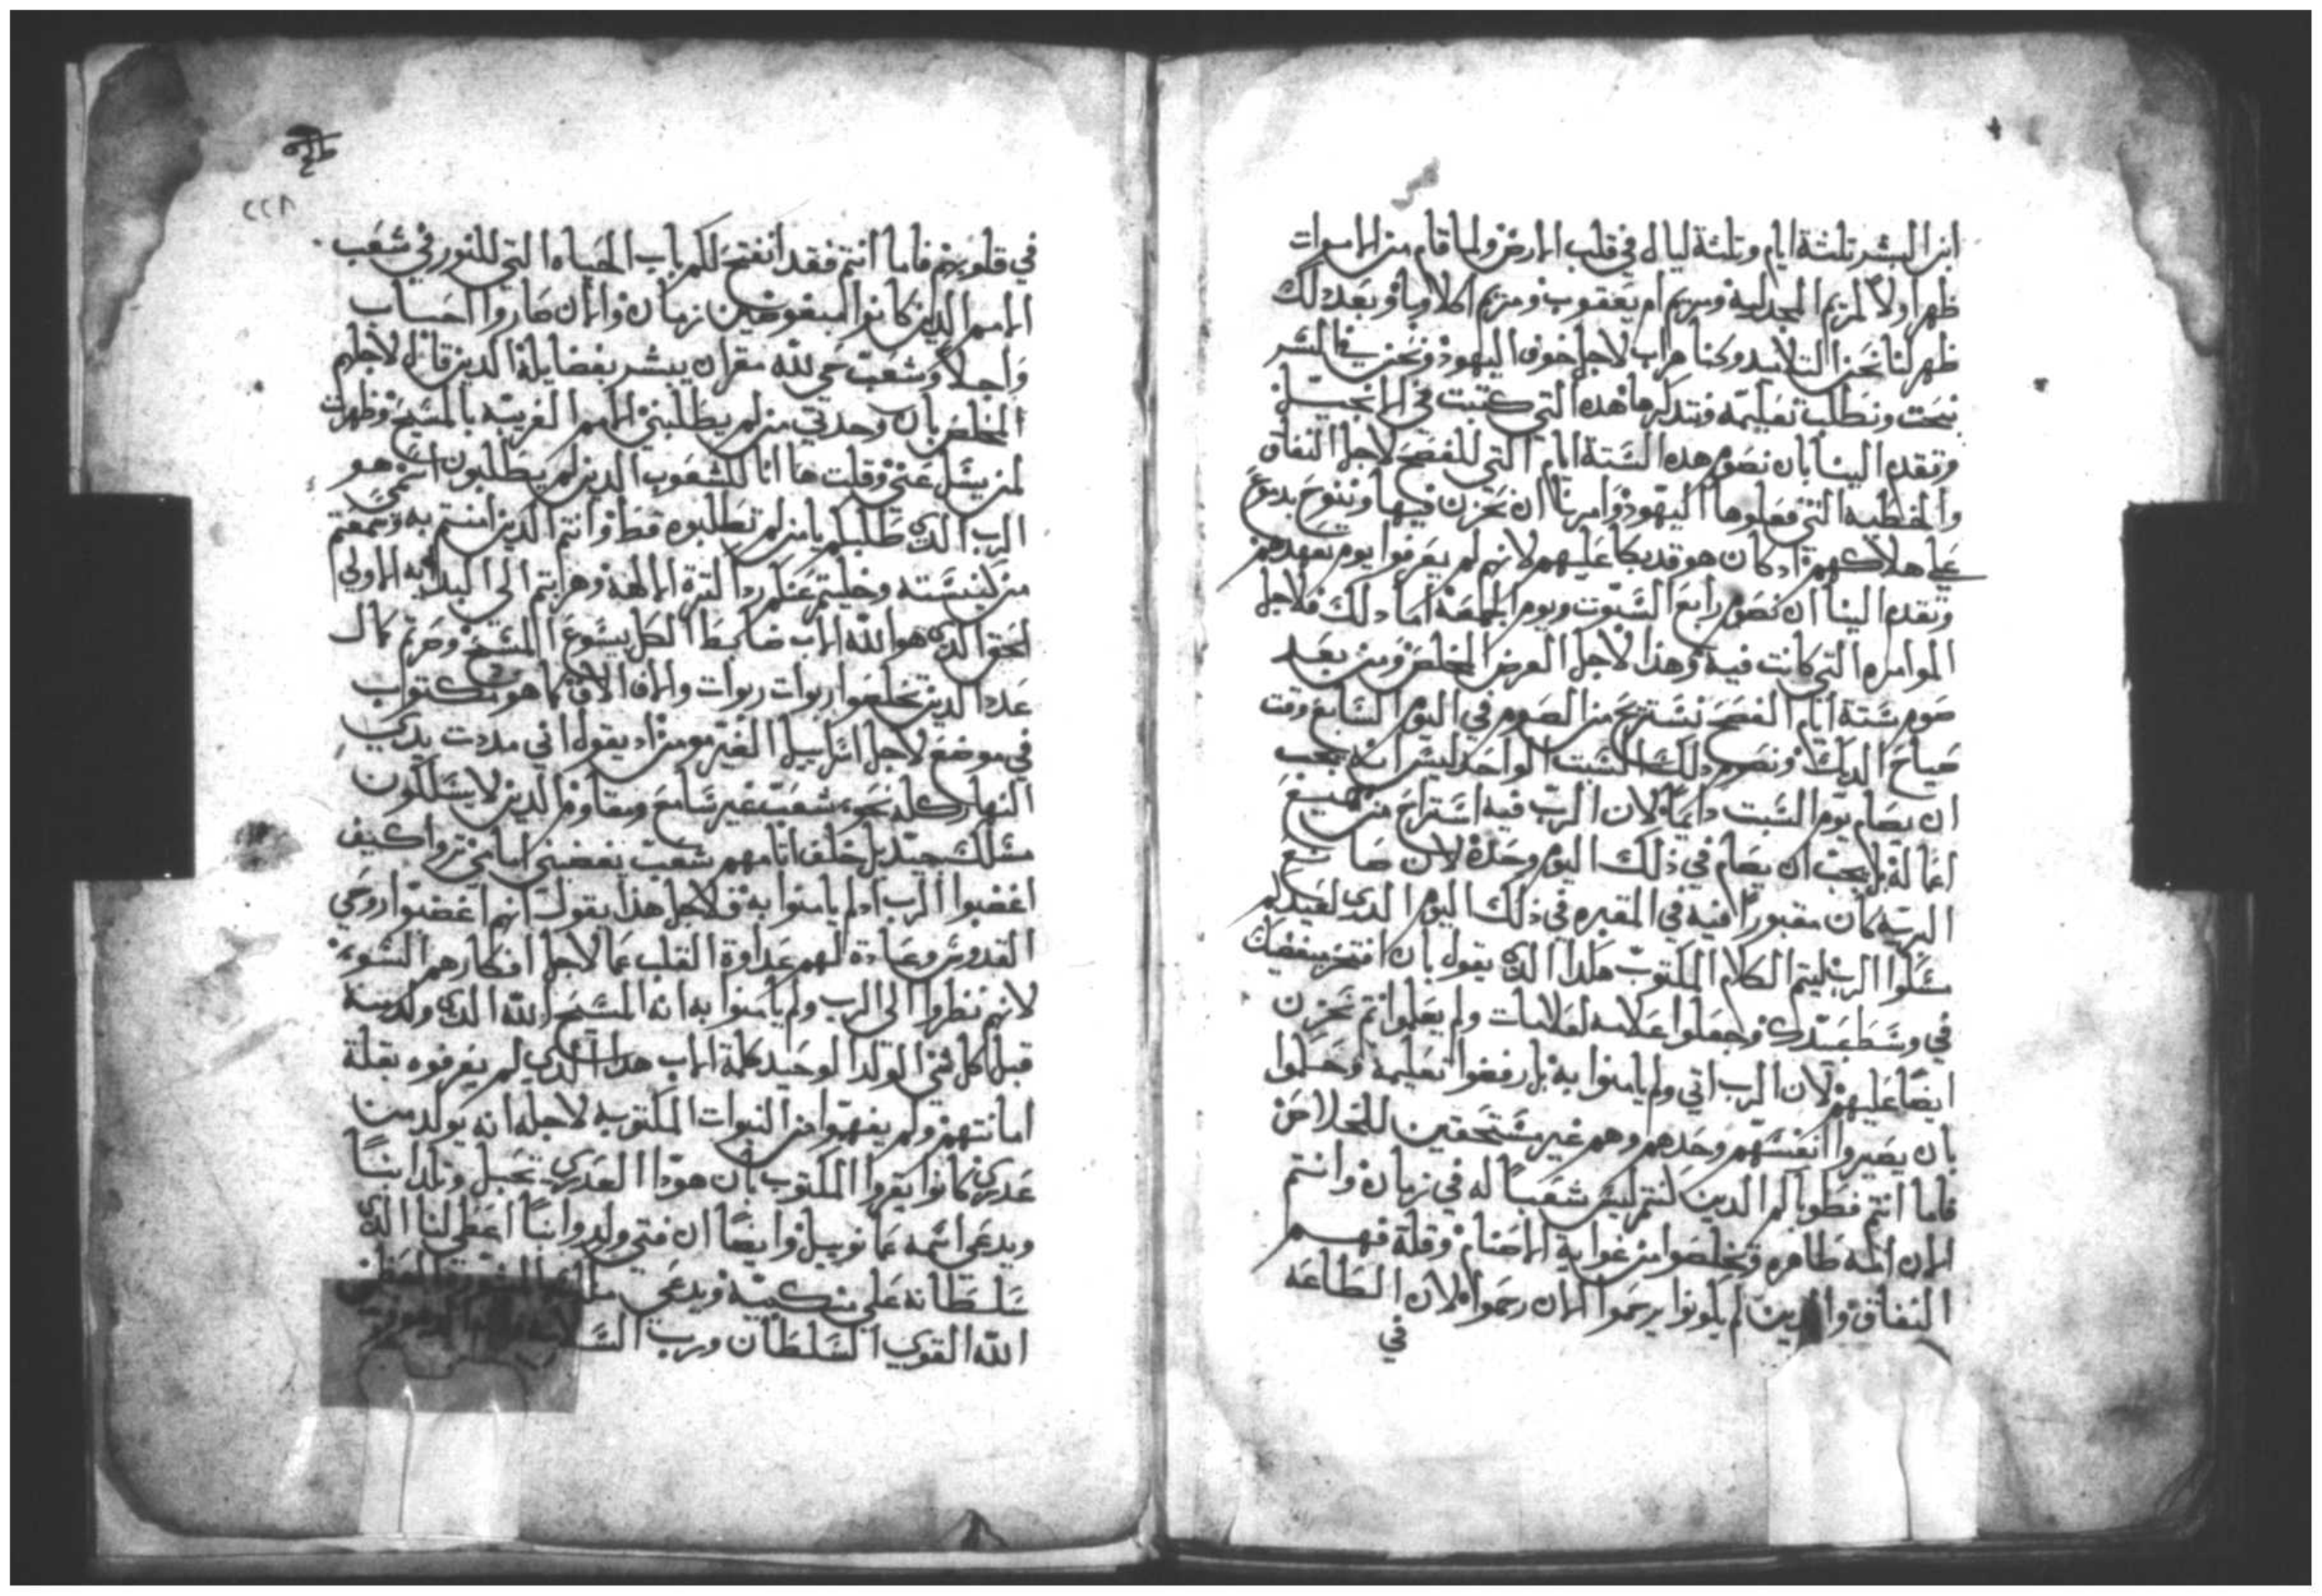 ابن البشر تلثة ايام وتلثة ليال في قلب الارض ولما قام من الاموات
ظهر اولا لمريم المجدلية ومريم ام يعقوب ومريم اكلاوبا وبعد ذلك
ظهر لنا نحن التلاميد وكنا هراب لاجل خوف اليهود ونحن في السر
نبحت ونطلب تعليمه ونتدكرها هده التي كتبت في الانجيل
وتقدم الينا بان نصوم هده الستة ايام التي للفصح لاجل النفاق
والخطيه التي فعلوها اليهود وامرنا ان نحزن فيها وننوح بدموع
علي هلاكهم اد كان هو قد بكا عليهم لانهم لم يعرفوا يوم تعهدهم
وتقدم الينا ان نصوم رابع السبوت ويوم الجمعة اما دلك فلاجل
الموامره التي كانت فيه وهذا لاجل العرض المخلص ومن بعد
صوم ستة ايام الفصح نستريح من الصوم في اليوم السابع وقت
صياح الديك ونصوم دلك السبت الواحد ليس انه يجب
ان يصام يوم السبت دايما لان الرب فيه استراح من جميع
اعماله بل يجب ان يصام في ذلك اليوم وحده لان صانع
البريه كان مقبورا فيه في المقبره في ذلك اليوم الدي لعيدكم
الرب ليتم الكلام المكتوب هكدا الدي يقول بان افتخر مبغضيك
في وسط عيدك وجعلوا علامه لعلامات ولم يعلموا ثم نحزن
ايضا عليهم لان الرب اتي ولم يامنوا به بل رفضوا تعليمه وحكموا
بان يصيروا انفسهم وحدهم وهم غير مستحقين للخلاص
فاما انتم فطوباكم الدين كنتم ليس شعبا له في زمان وانتم
الان امه طاهره وتخلصوا من غواية الاصنام وقلة فهم
النفاق والدين لم يكونوا يرحموا الان رحموا لان الطاعه
في
في قلوبهم فاما انتم فقد انفتح لكم باب الحياه التي للنور في شعب
الامم الدين كانوا المبغوضين زمان والان صاروا احساب
واجلا وشعب حي لله مقران يبشر بفضايلة الدين قال لاجلهم
المخلص بان وحدتي من لم يطلبني الامم الغريبه بالمسيح وظهرت
لمن يسل عني وقلت ها انا للشعوب الدين لم يطلبون اسمي هو
الرب الدي طلبكم يا من لم تطلبوه قط وانتم الدين امنتم به وسمعتم
من كنيسته وخليتم عنكم ردا لتره الالهة وهربتم الي البدايه الاولي
لحق الدي هو الله الاب ضابط الكل يسوع المسيح وصرتم كمال
عدد الدين تخلصوا ربوات ربوات والاف الاف كما هو مكتوب
في موضع لاجل اسراييل الغير مومن اد يقول اني مددت يدي
النهار كله نحو شعب غير سامع ومقاوم الدين لا يسلكون
مسلك جيد بل خلف اتامهم شعب يغضبني امامي تروا كيف
اغضبوا الرب اد لم يامنوا به فلاجل هدا يقول انهم اغضبوا روحي
القدوس وعاده لهم عداوة القلب عما لاجل افكارهم السوء
لانهم نظروا الي الرب ولم يامنوا به انه المسيح الله الدي ولد منه
قبل كل شي الولد الوحيد كلمة الاب هدا الدي لم يعرفوه بقلة
امانتهم ولم يفهموا من النبوات المكتوبه لاجله انه يولد من
عدري كانوا يقروا المكتوب بان هودا العدري تحبل وتلد ابنا
ويدعي اسمه عمانوييل وايضا ان فتي ولد وابنا اعطي لنا الدي
سلطانه علي منكبيه ويدعي
الله القوي السلطان ورب